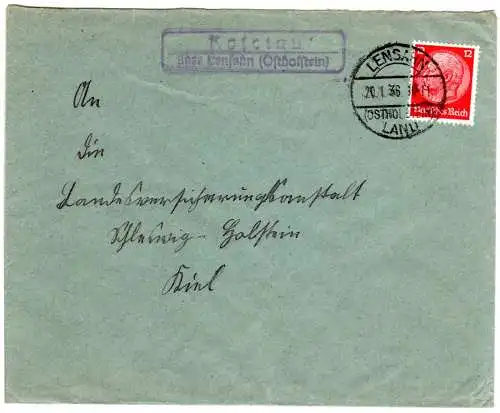 Koselau
über Lensahn (Ostholstein)
LENSAHN
20.1.36
(OSTHOLST)
LAND
12
Deutsches Reich
An
die
Landesversicherungsanstalt
Schleswig-Holstein
Kiel